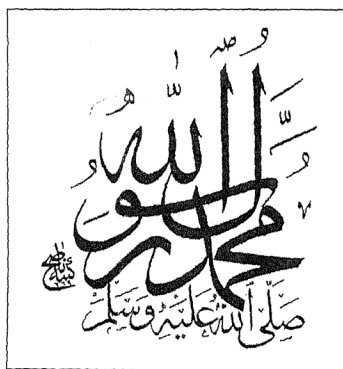 محمد رسول الله
صَلَّى ٱللّٰهُ عَلَيْهِ وَسَلَّمَ